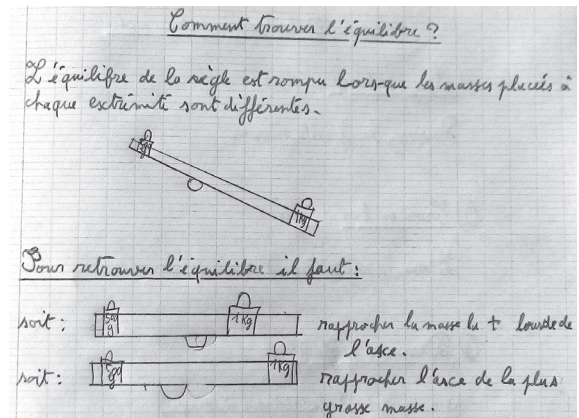 Comment trouver l'équilibre ?
L'équilibre de la règle est rompu lors-que les masses placées à
chaque extrémité sont différentes.
1 Kg
Pour retrouver l'équilibre il faut :
soit : 500 g 1 Kg rapprocher la masse la + lourde de
l'axe.
soit : 1 Kg rapprocher l'axe de la plus
grosse masse.